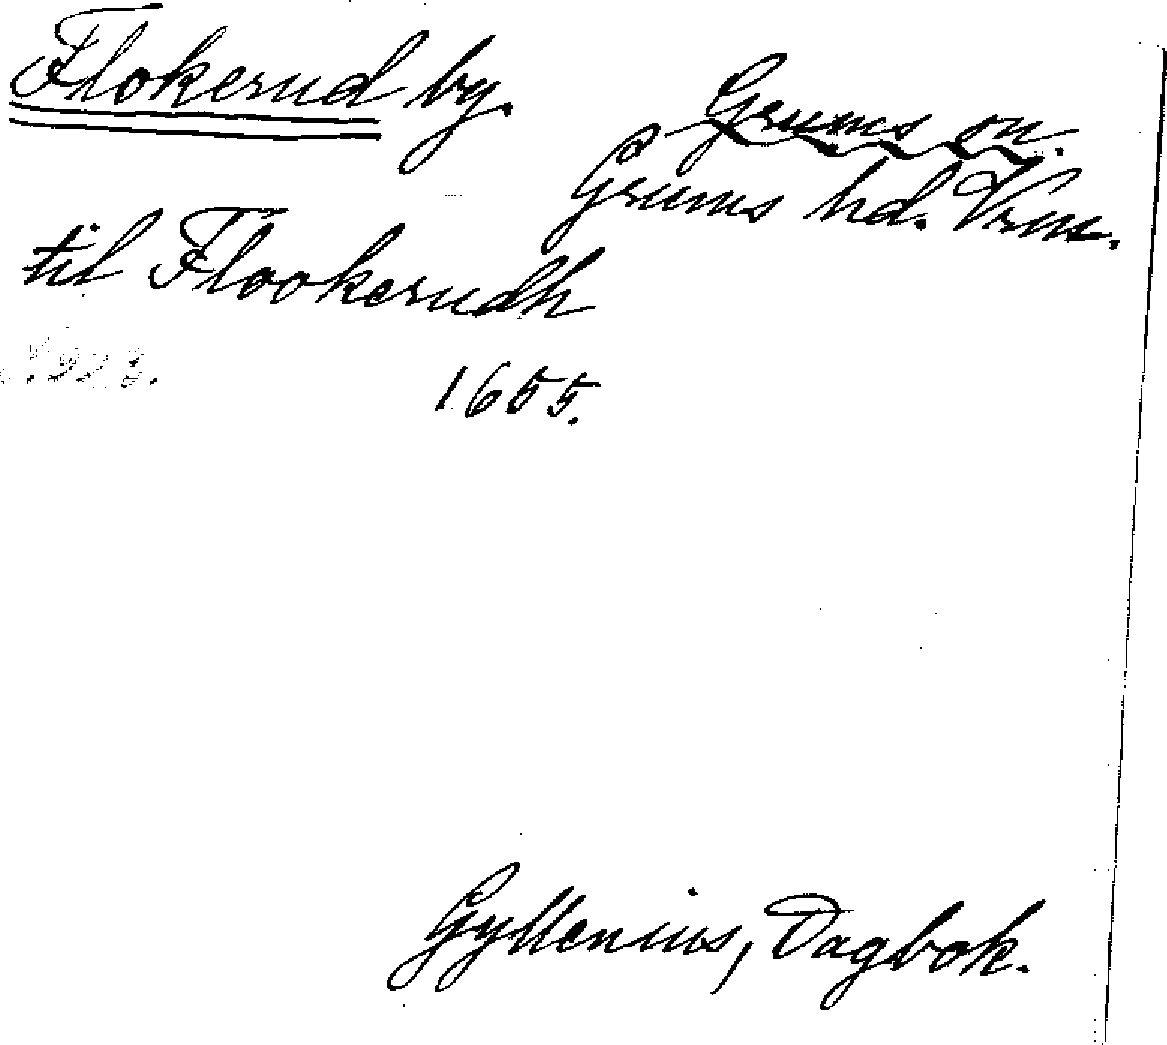 Flokerud by.
Grums sn.
Grums hd. Vrm.
til Flookerudh
1655.
Gyllenius, Dagbok.